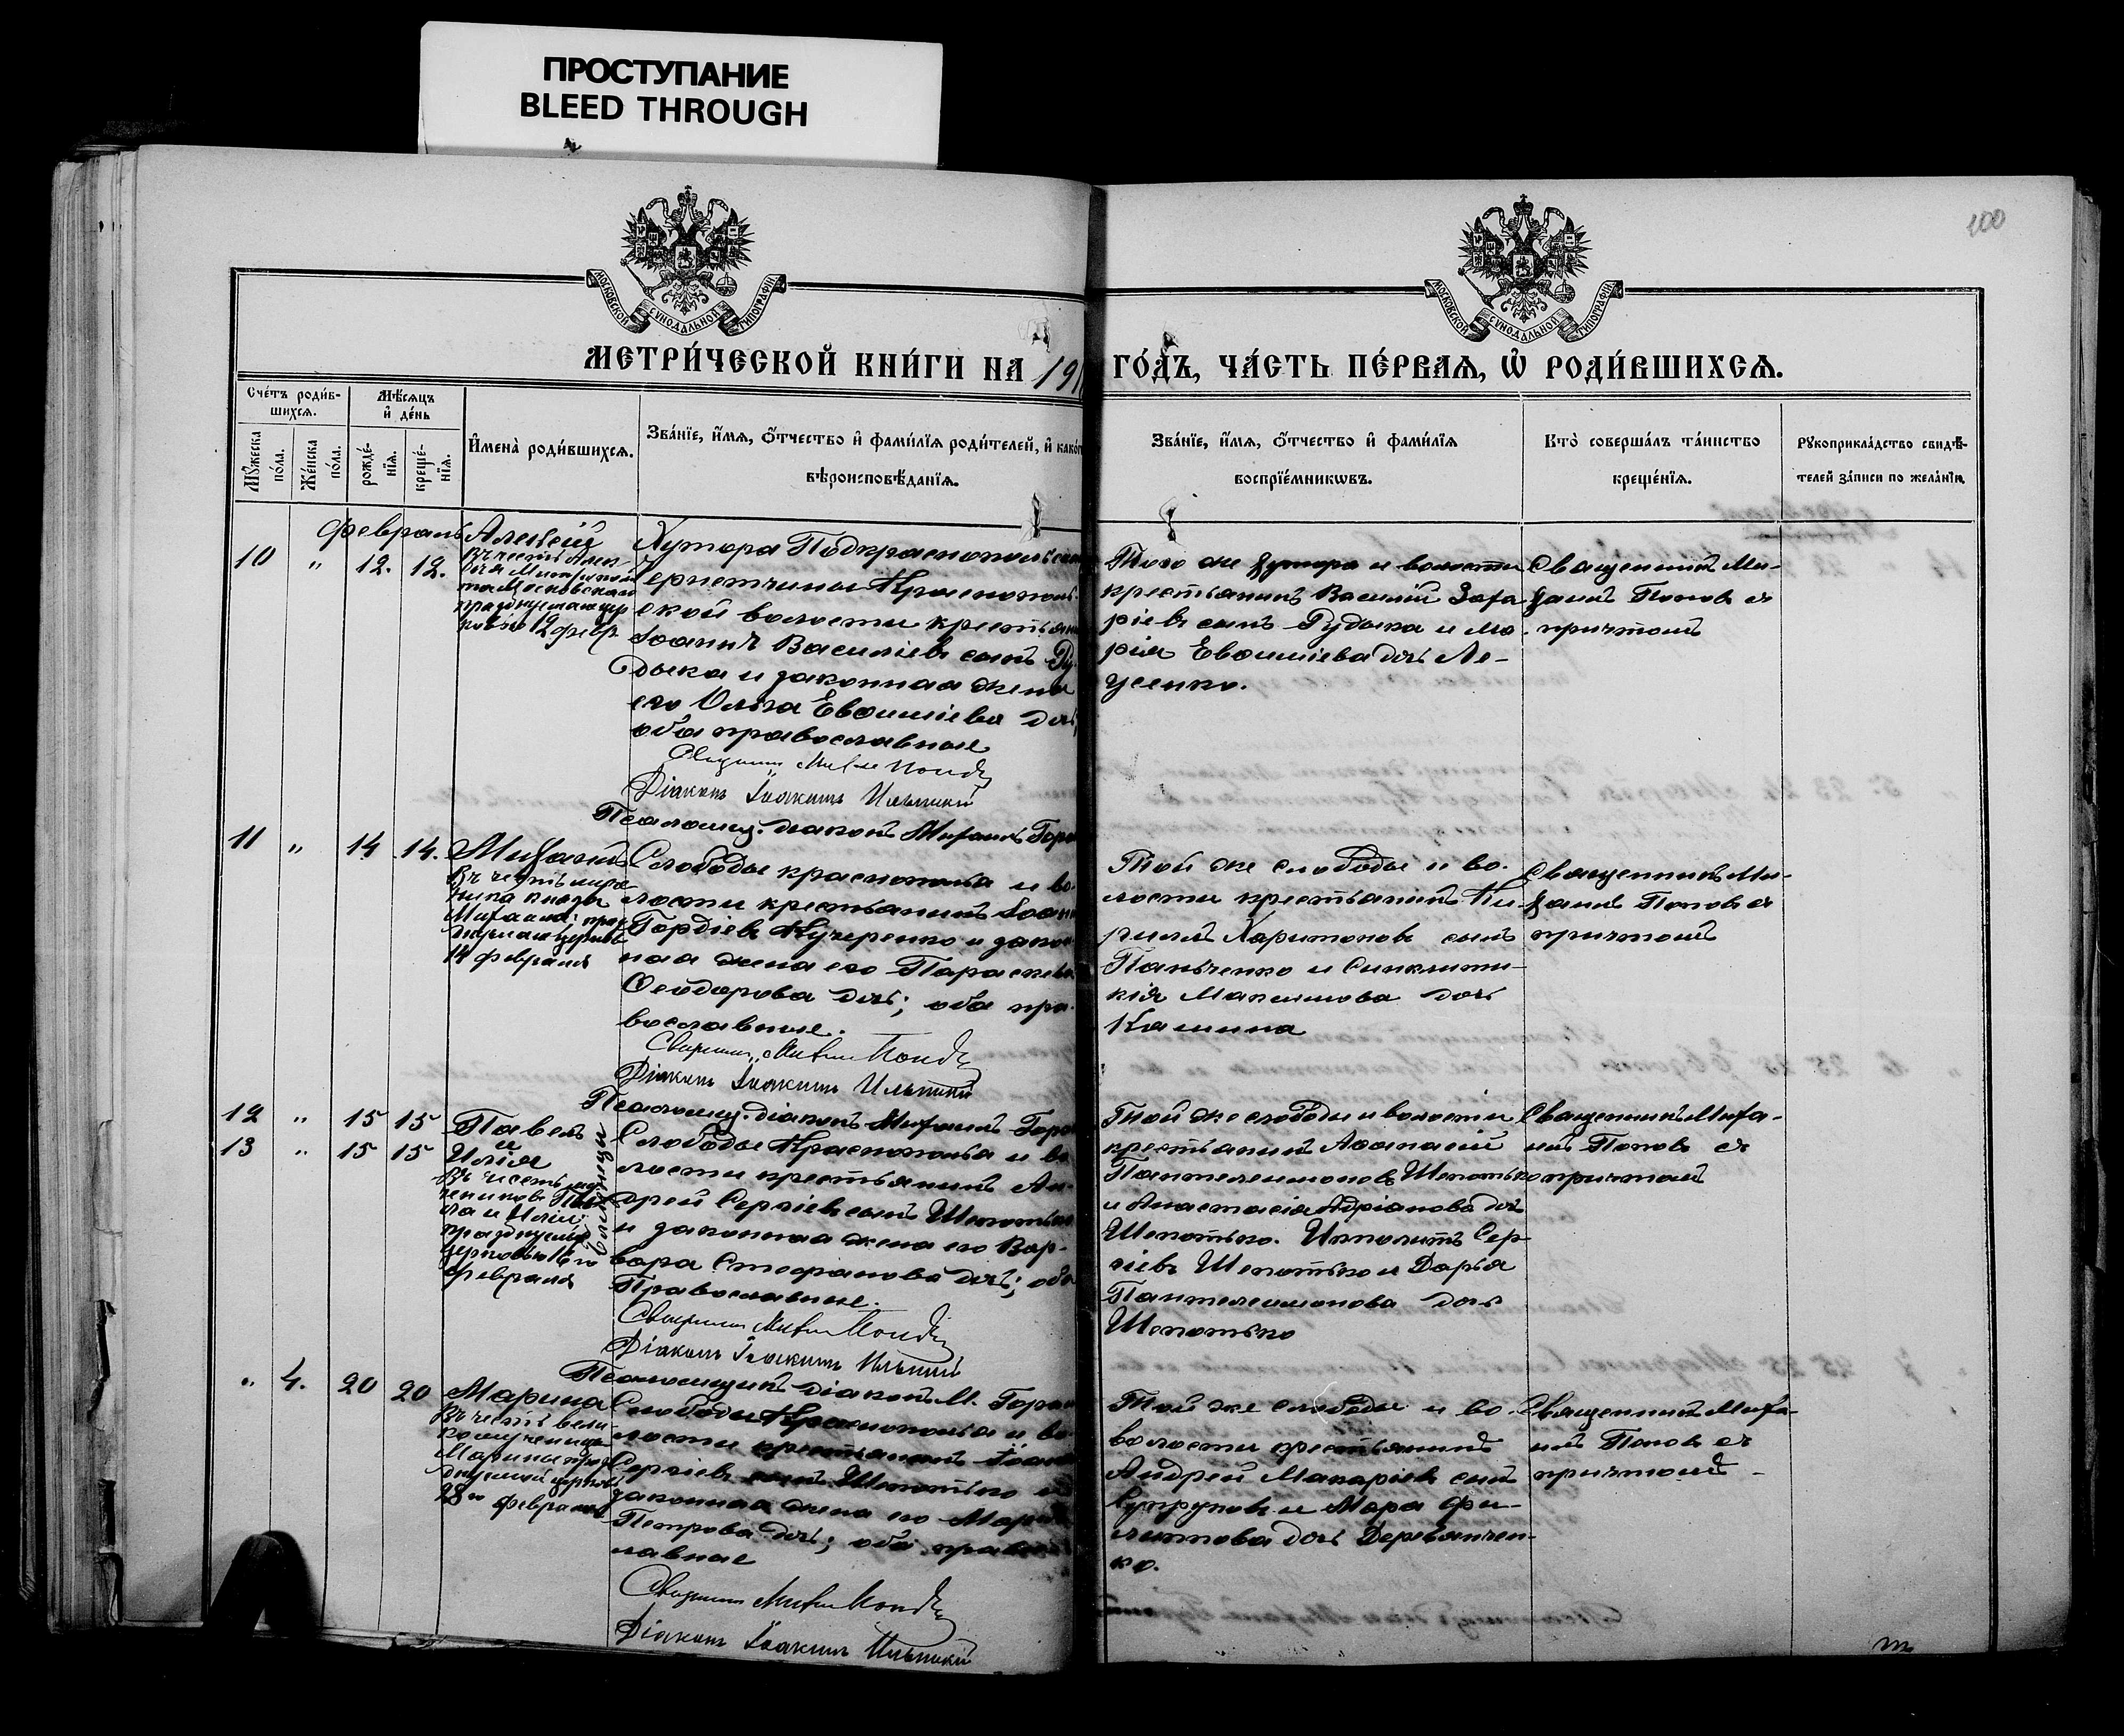 ПРОСТУПАНИЕ
BLEED THROUGH
100
МОСКОВСКОЙ СѴНОДАЛЬНОЙ ТИПОГРАФІИ
МОСКОВСКОЙ СѴНОДАЛЬНОЙ ТИПОГРАФІИ
МЕТРИ́ЧЕСКОЙ КНИ́ГИ НА 191 ГО́ДЪ, ЧА́СТЬ ПЕ́РВАЯ, Ѽ РОДИ́ВШИХСЯ.
Сче́тъ роди́в-
шихся.
Мѣ́сяцъ
и҆ де́нь
Мꙋ́жеска
по́ла.
Же́нска
по́ла.
рожде́-
нїя.
креще́-
нїя.
И҆мена̀ роди́вшихся.
Зва́нїе, и҆́мя, ѻ҆́тчество и҆ фами́лїя роди́телей, и҆ како́г
вѣроисповѣ́данїя.
Зва́нїе, и҆́мя, ѻ҆́тчество и҆ фами́лїя
воспрїе́мникѡвъ.
Кто̀ соверша́лъ та́инство
креще́нїя.
Рꙋкоприкла́дство свидѣ́-
телей за́писи по жела́нїю.
Февраль
10 " 12. 12.
Алексій
Въ честь Алек-
сія Митрополи
та Московскаго
празднуемаго цер
ковію 12 февр.
Хутора Подкраснополь
Краснополь-
ской волости крестьян
Іоаннъ Василіевъ сынъ Ру
дыка и законная жена
его Ольга Евѳиміева дочь
оба православные
Священник Михаил Попов
Діаконъ Іоакимъ Ильицкій
Псаломщ. діаконъ Михаилъ Гора
Того же хутора и волости
крестьянинъ Василій Заха
ріевъ сынъ Рудыка и Ма-
рія Евѳиміева дочь Ле-
усенко.
Священникъ Ми-
хаилъ Поповъ съ
причтомъ
11 " 14 14.
Михаилъ
Въ честь муче
ника князя
Михаила праз
церков
14 февраля
Слободы Краснополья и во-
лости крестьянинъ Іоанн
Гордіевъ Кучеренко и закон
ная жена его Параскева
Ѳеодорова дочь; оба пра-
вославные.
Священник Михаил Попов
Діаконъ Іоакимъ Ильицкій
Псаломщ. діаконъ Михаилъ Гора
Той же слободы и во-
лости крестьянинъ Ки
риллъ Харитоновъ сынъ
Панченко и Синклити-
кія Максимова дочь
Калинина
Священникъ Ми-
хаилъ Поповъ съ
причтомъ
12 " 15 15
13 " 15 15
Павелъ
и
Илія
близнецы
Въ честь му
чениковъ Пав
ла и Иліи
празднуемых
церковію 16го
февраля
Слободы Краснополья и во
лости крестьянинъ Ан-
дрей Сергіевъ сынъ Шепотько
и законная жена его Вар-
вара Стефанова дочь; оба
Православные.
Священник Михаил Попов
Діаконъ Іоакимъ Ильицкій
Псаломщикъ діаконъ М. Гора
Той же слободы и волости
крестьянинъ Аѳанасій
Пантелеимоновъ Шепотько
и Анастасія Адріанова дочь
Шепотько. Ипполитъ Сер-
гіевъ Шепотько и Дарья
Пантелеимонова дочь
Шепотько
Священникъ Миха-
илъ Поповъ съ
причтомъ
" 4. 20 20
Марина
Въ честь вели-
комученицы
Марины праз
днуемой церков
28го февраля
Слободы Краснополья и во-
лости крестьянинъ Іоанн
Сергіевъ сынъ Шепотько и
законная жена его Марія
Петрова дочь; оба право
лавные
Священник Михаил Попов
Діаконъ Іоакимъ Ильицкій
Той же слободы и во-
волости крестьянинъ
Андрей Макаріевъ сынъ
Супруновъ и Мара Фи-
липпова дочь Деревянчен-
ко.
Священникъ Миха-
илъ Поповъ съ
причтомъ